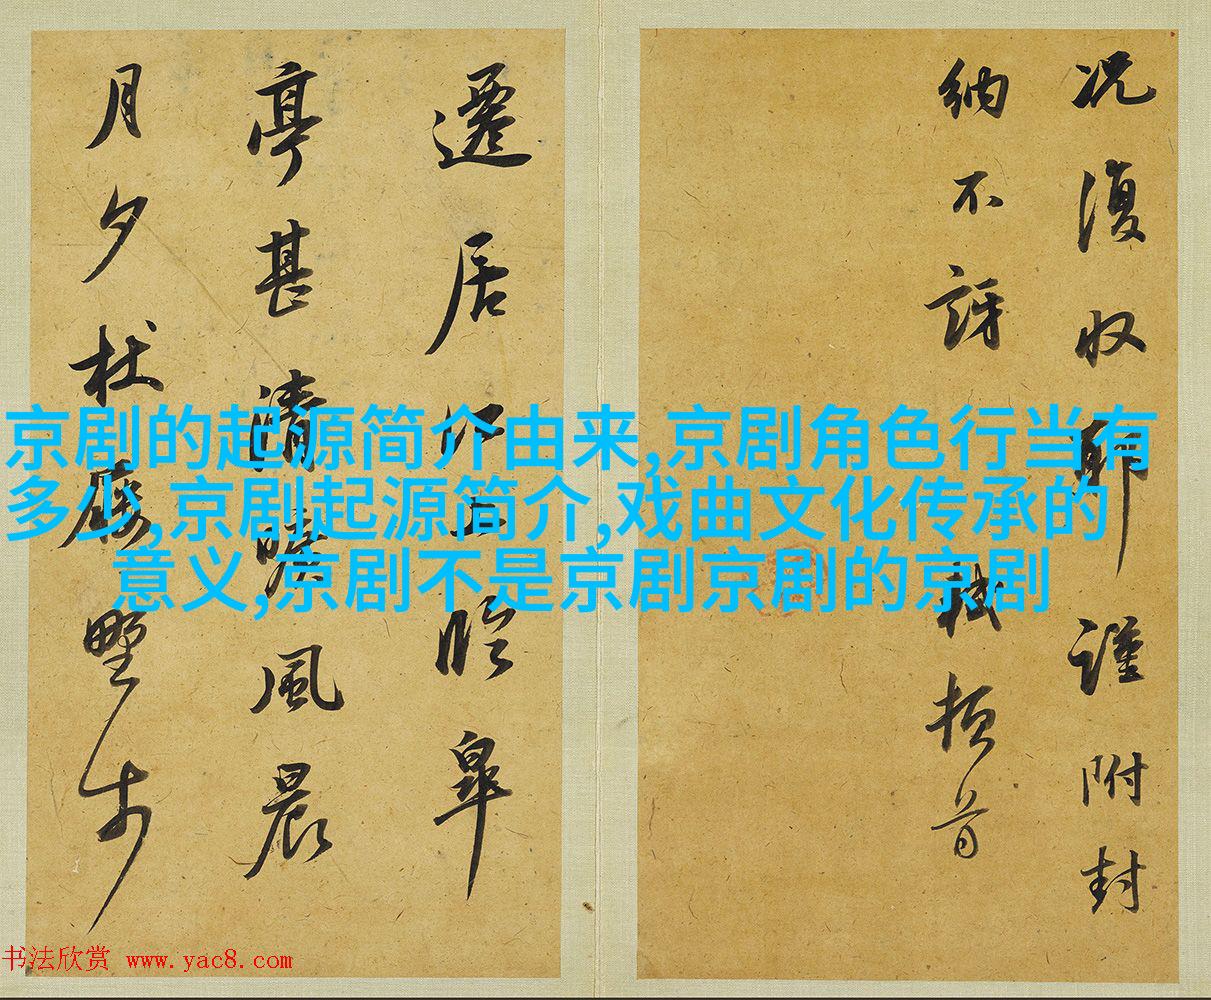 况復収耶謹附封
納不訝軾頓首
遷居江上臨皋
亭甚清曠風晨
月夕杖屨野步
京剧的起源简介由来,京剧角色行当有
多少,京剧起源简介,戏曲文化传承的
意义,京剧不是京剧京剧的京剧
书法欣赏 www.yac8.com